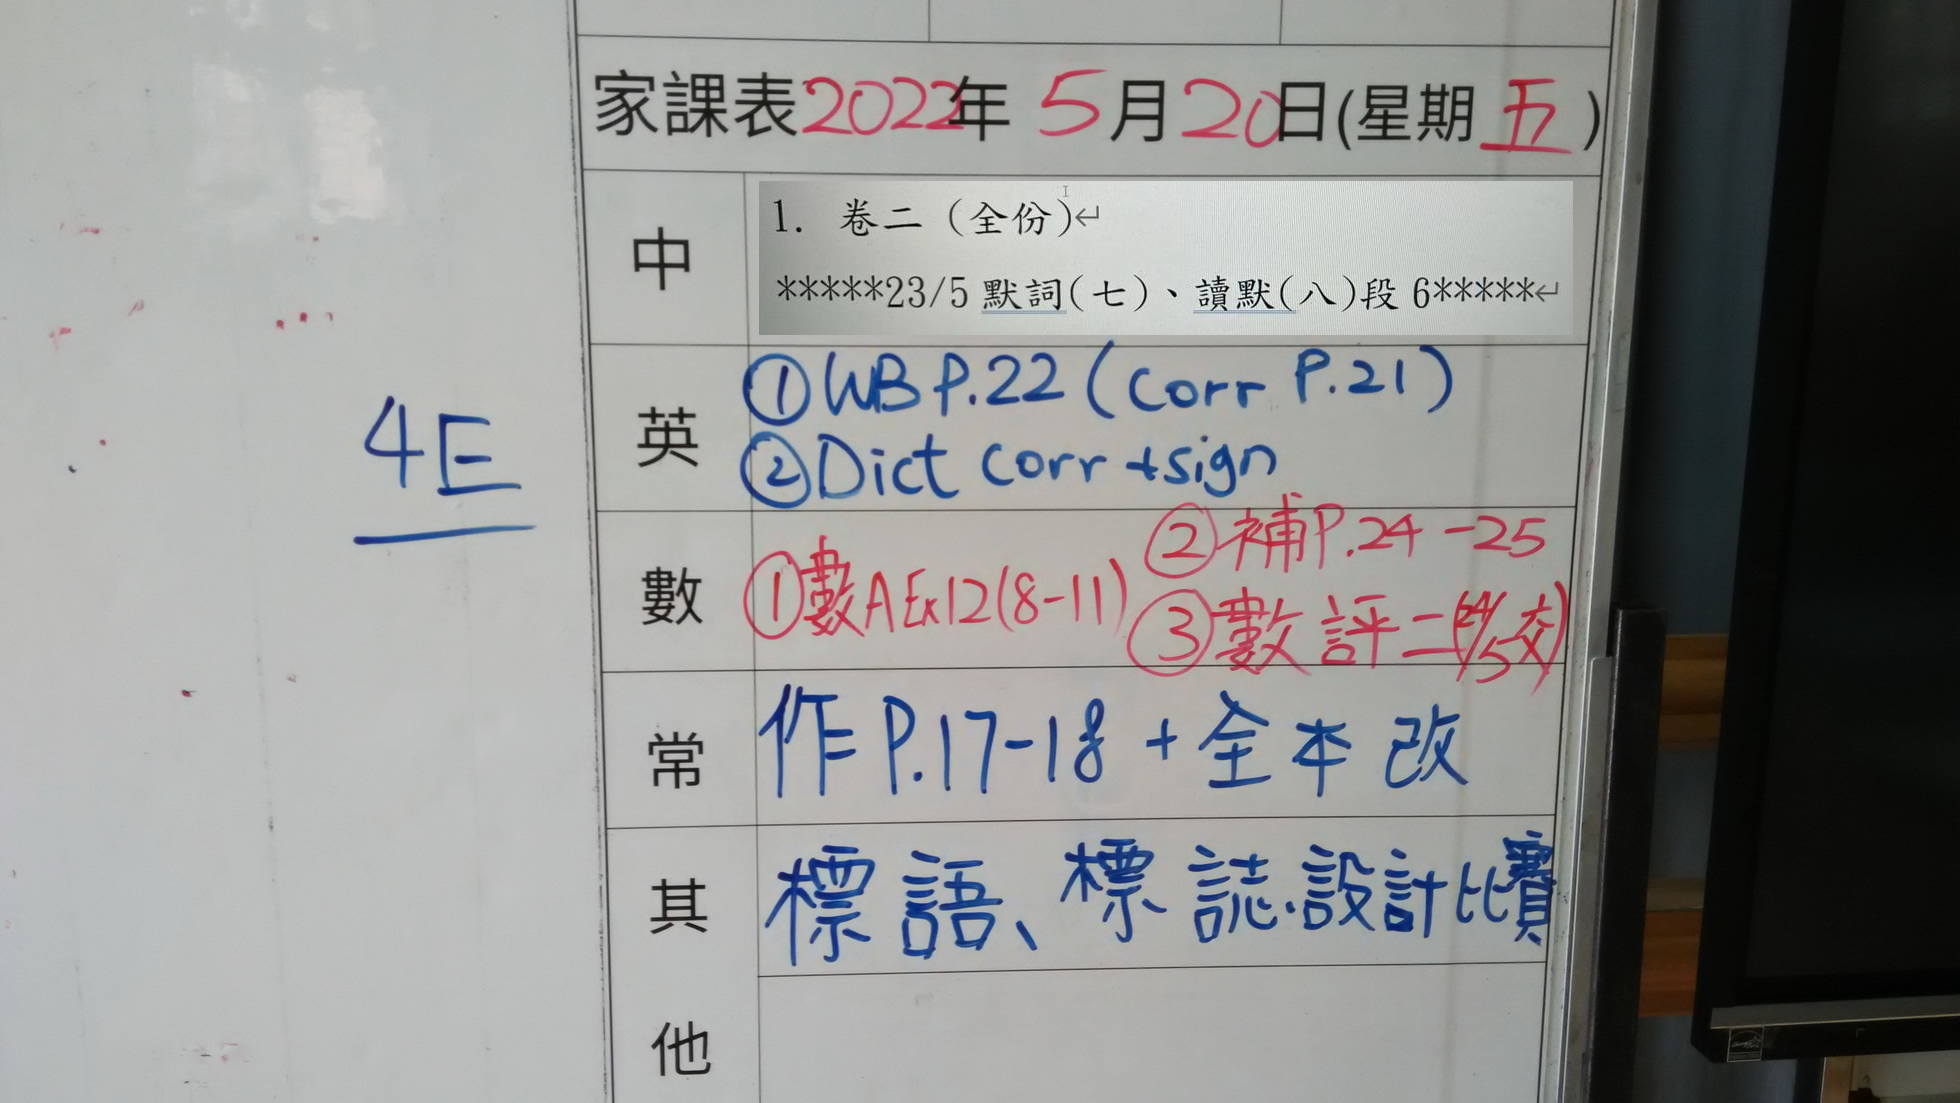 家課表2022年 5月20日(星期 五)
中
1. 卷二（全份）
*****23/5 默詞(七)、讀默(八)段 6*****
4E
英
①WB P.22 (Corr P.21)
②Dict corr +sign
數
①數A Ex12(8-11)
②補P.24-25
③數評二(24/5交)
常
作 P.17-18 + 全本改
其他
標語、標誌.設計比賽